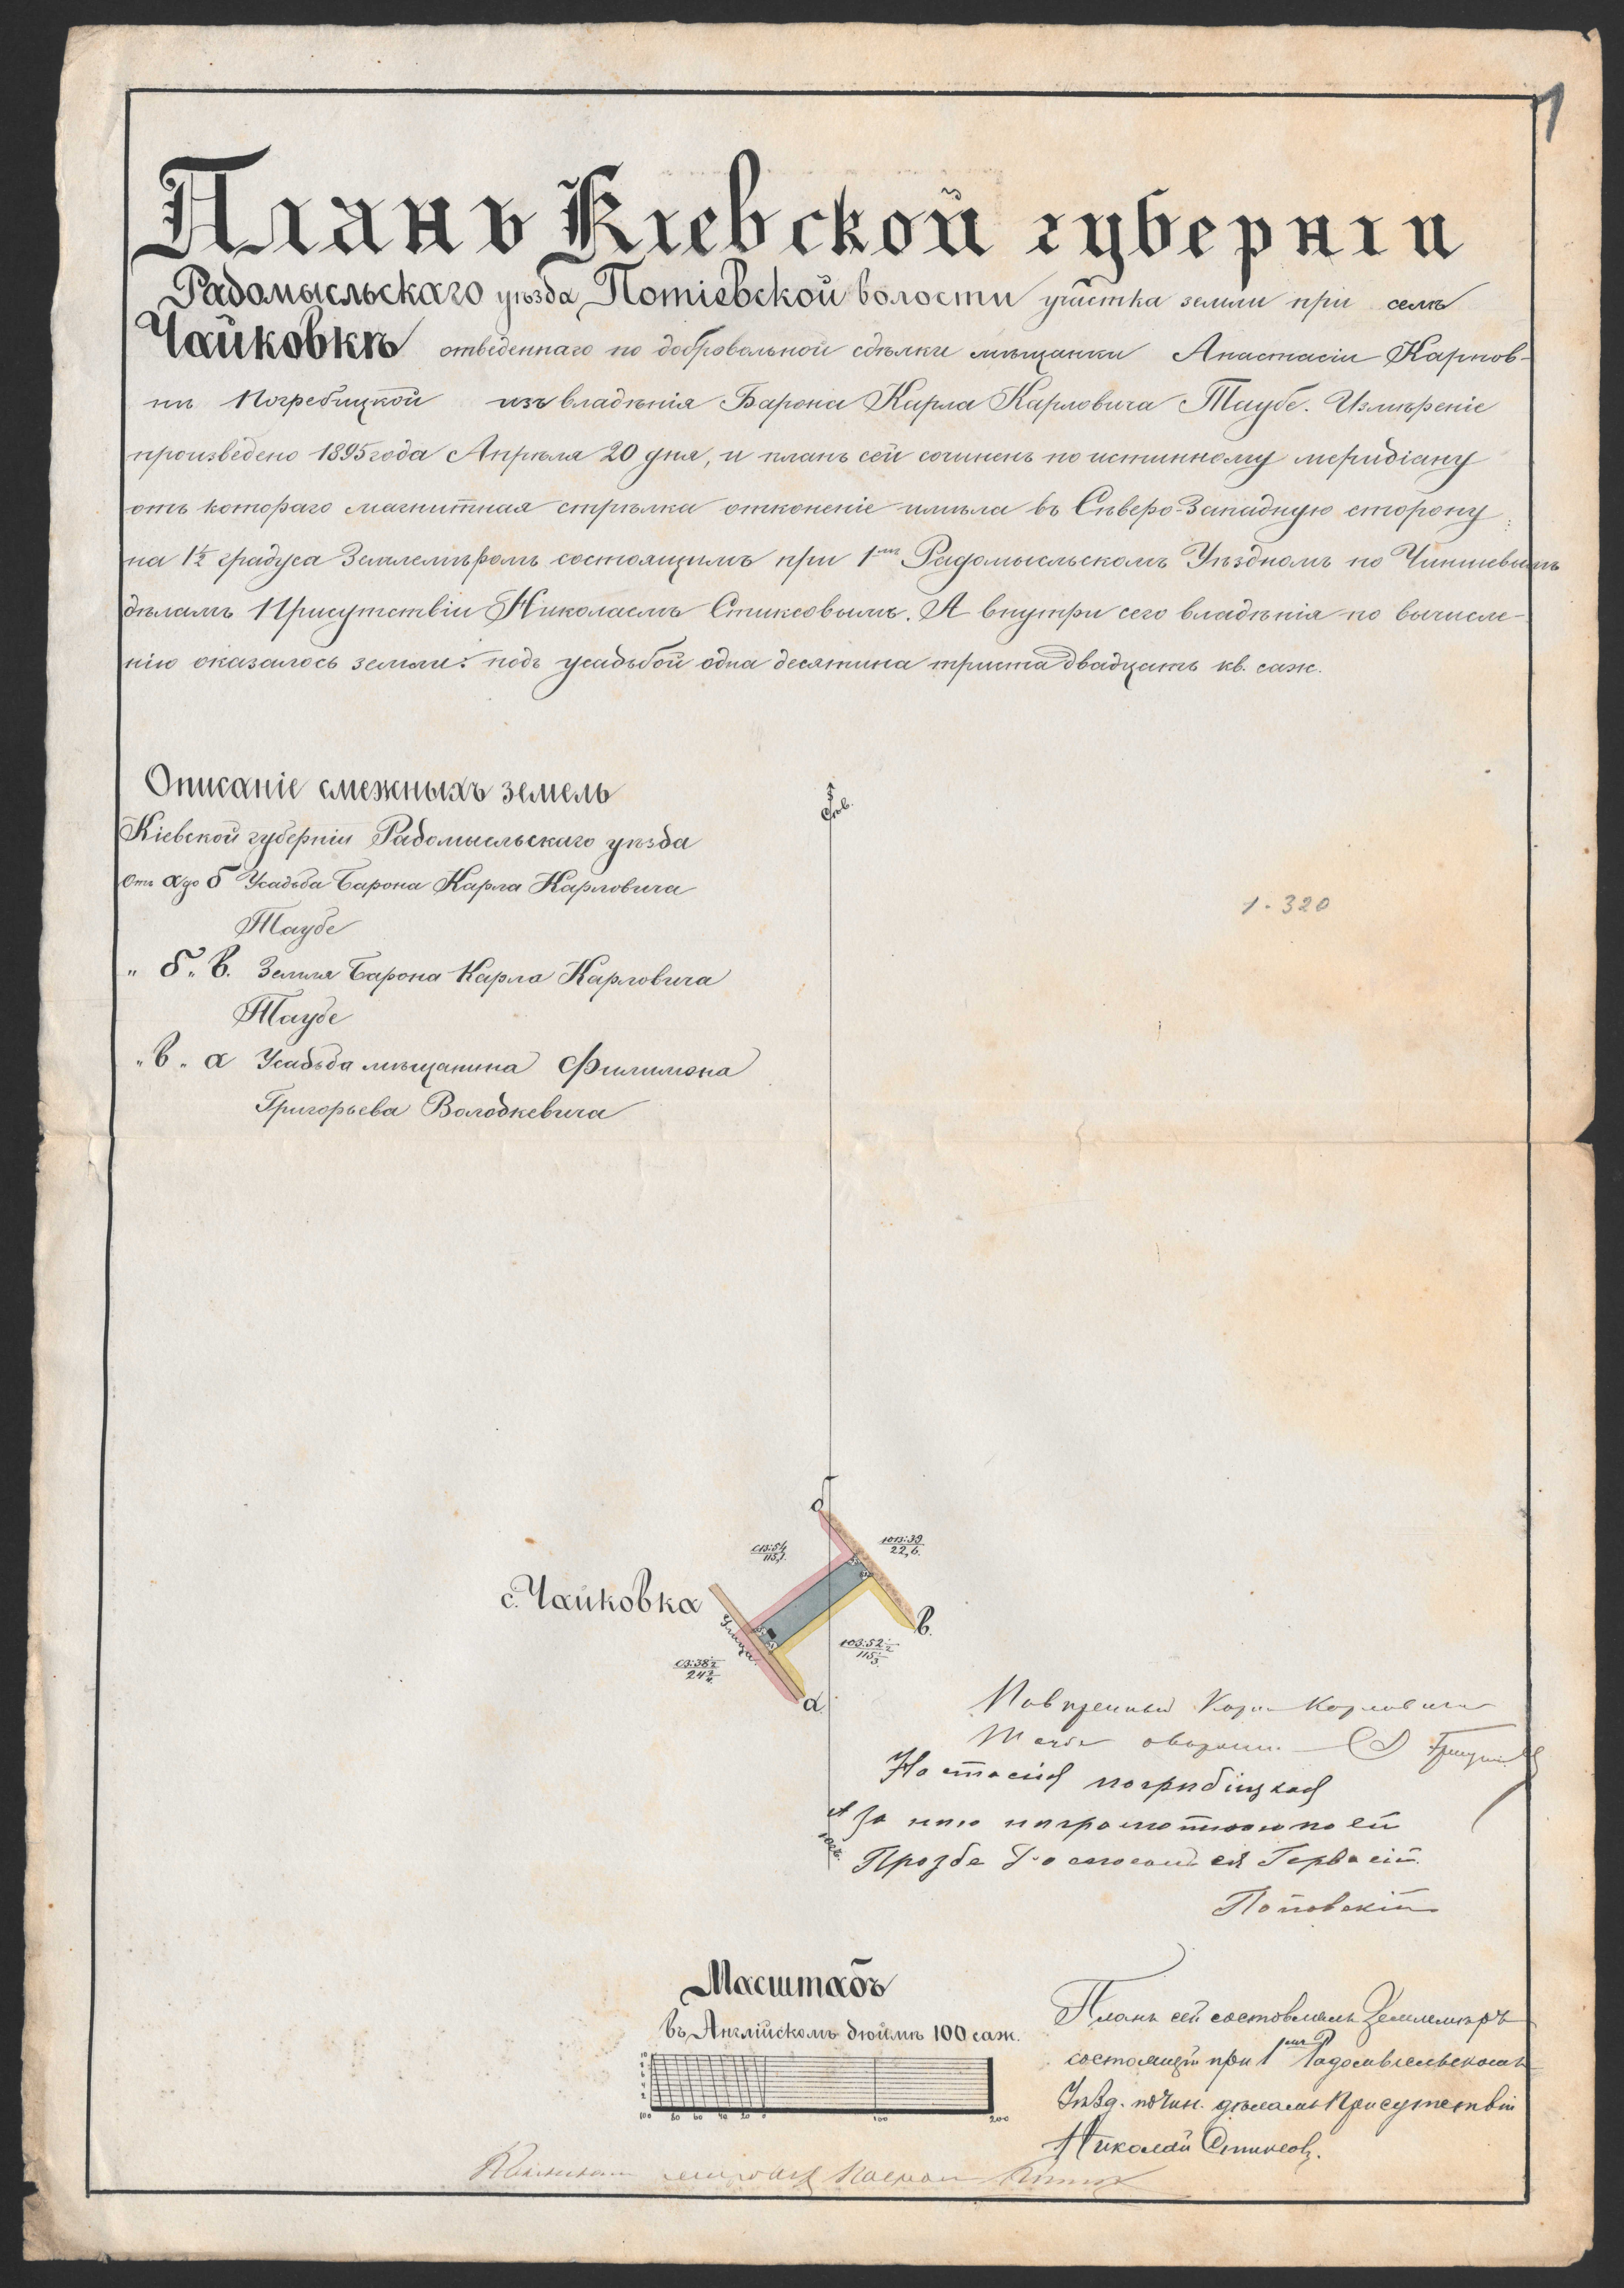 1
Планъ Кіевской губерніи
Радомысльскаго уѣзда Потіевской волости участка земли при селѣ
Чайковкѣ отведеннаго по добровольной сдѣлки мѣщанки Анастасіи Карпов-
ны Погребицкой изъ владѣнія Барона Карла Карловича Таубе. Измѣреніе
произведено 1895 года Апрѣля 20 дня, и планъ сей сочиненъ по истинному меридіану
отъ котораго магнитная стрѣлка отклоненіе имѣла въ Сѣверо-Западную сторону
на 1½ градуса Землемѣромъ состоящимъ при 1мъ Радомысльскомъ Уѣздномъ по Чиншевымъ
дѣламъ Присутствіи Николаемъ Стиксовымъ. А внутри сего владѣнія по вычисле-
нію оказалось земли: подъ усадьбой одна десятина триста двадцать кв. саж.
Описаніе смежныхъ земель
Кіевской губерніи Радомысльскаго уѣзда
Отъ а до б Усадьба Барона Карла Карловича
Таубе
" б " в. Земля Барона Карла Карловича
Таубе
" в " а Усадьба мѣщанина Филимона
Григорьева Володкевича
Сѣв.
1 - 320
б
СВ:54
115,1.
ЮВ:39
22,6.
с. Чайковка
Улица
в.
ЮЗ:52½
СЗ:38½
24¾
а
Повѣренный Карла Карловича
Настасія погрибіцкая
А за нею ниграмотною по ей
Прозбе Росписался Гервасій
Поповскій
Юж.
Масштабъ
въ Англійскомъ дюймѣ 100 саж.
10
8
6
4
2
100 80 60 40 20 0 100 200
Планъ сей составлялъ Землемѣръ
состоящій при 1мъ Радомысльскомъ
Уѣзд. по Чин. дѣламъ Присутствіи
Николай Стиксовъ.